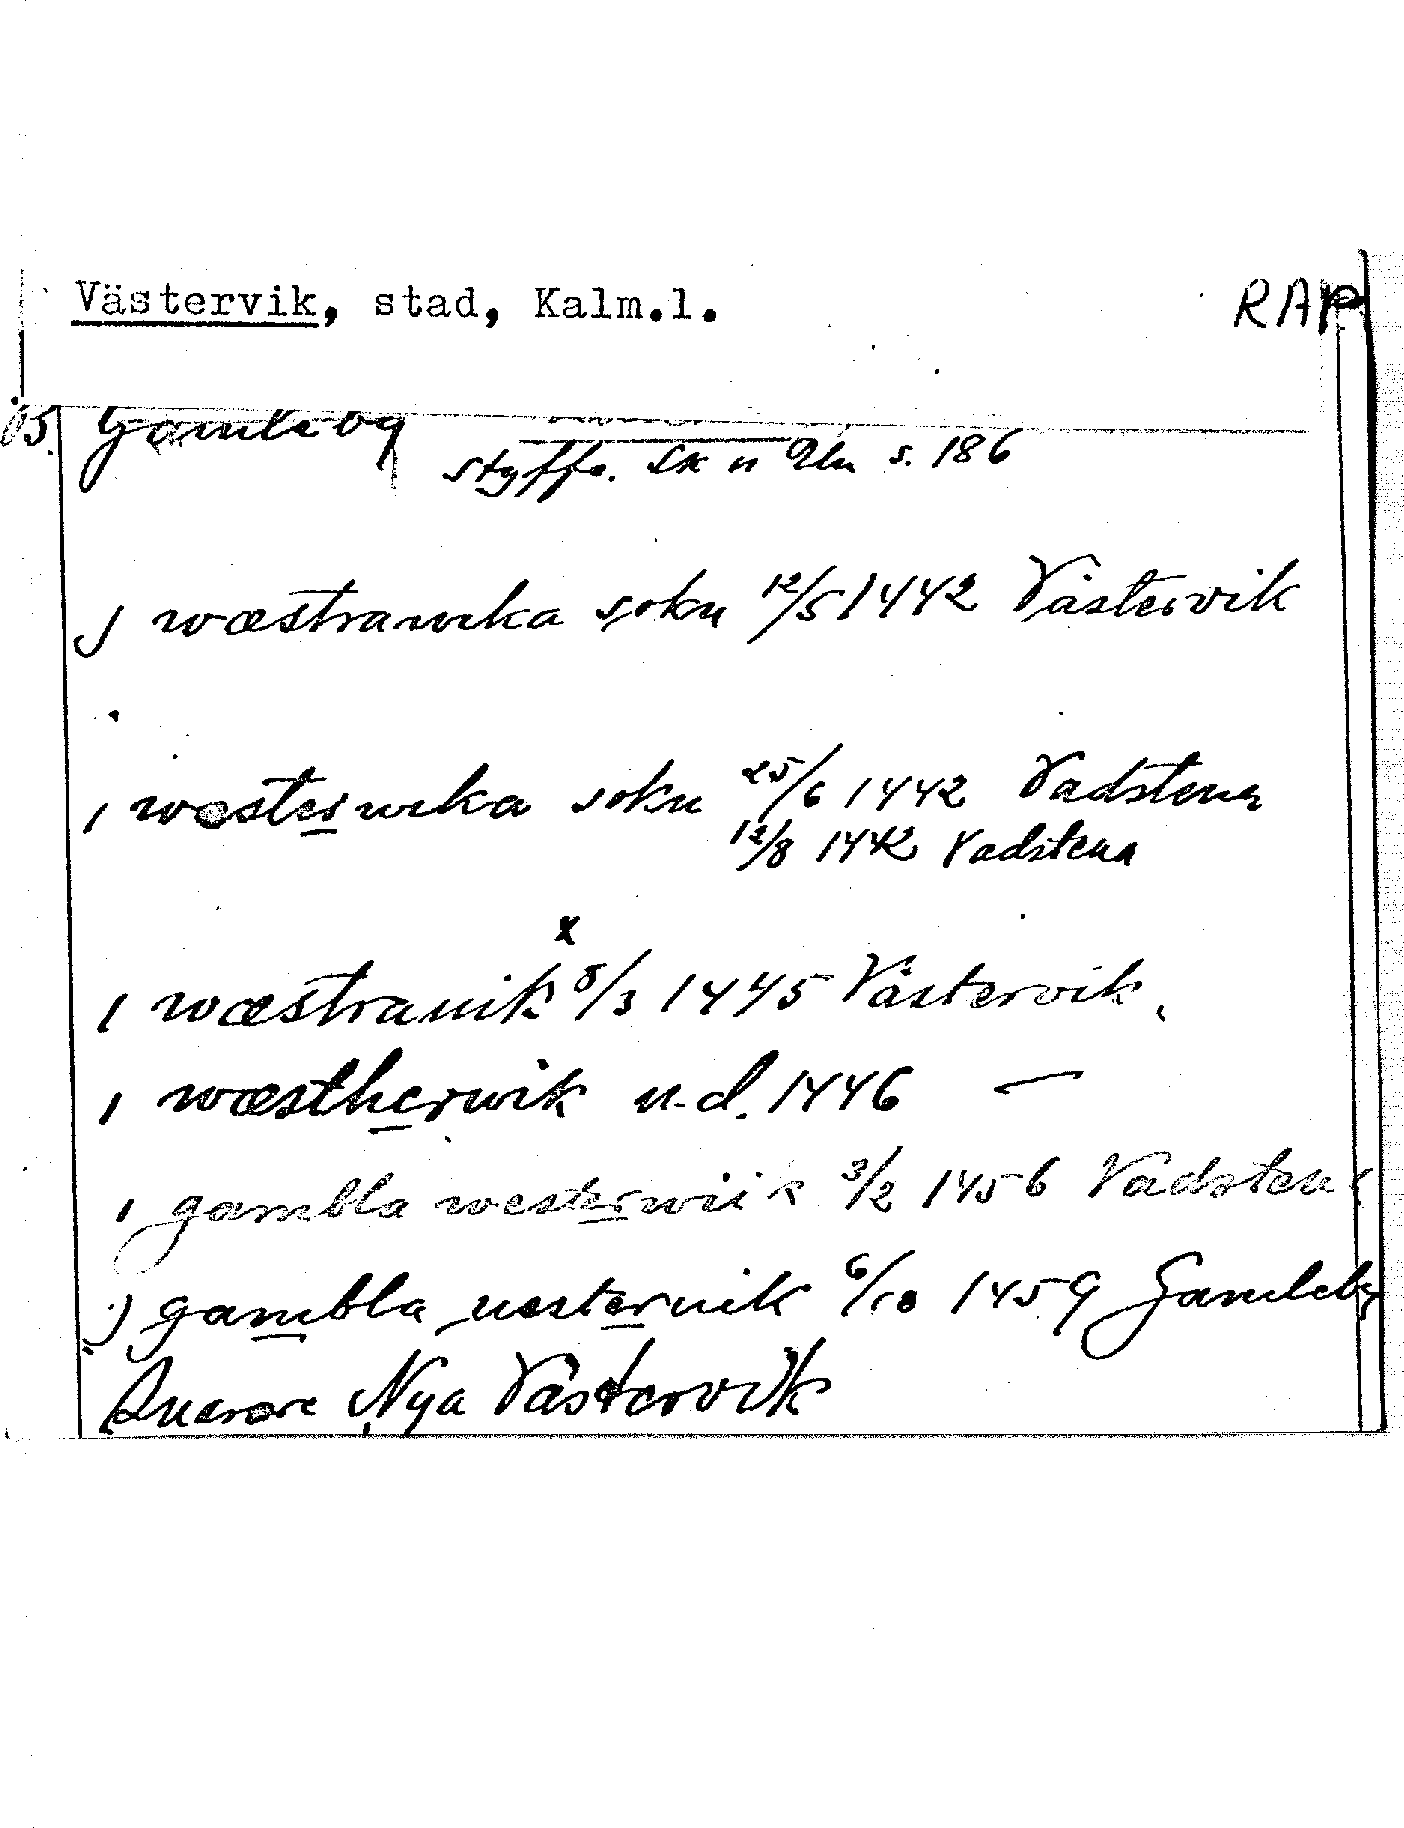 Västervik, stad, Kalm.l. RAP
Gamleby
Styffe. Sk u Un s. 186
J wæstrawika sokn 12/5 1442 Västervik
i westerwika sokn 25/6 1442 Vadstena
12/8 1442 Vadstena
x
i wæstrauik 8/3 1445 Västervik
i wæstherwik u.d. 1446 —
i gambla westerwiik 3/2 1456 Vadstena
j gambla uesteruik 6/10 1459 Gamleby
Nya Västervik